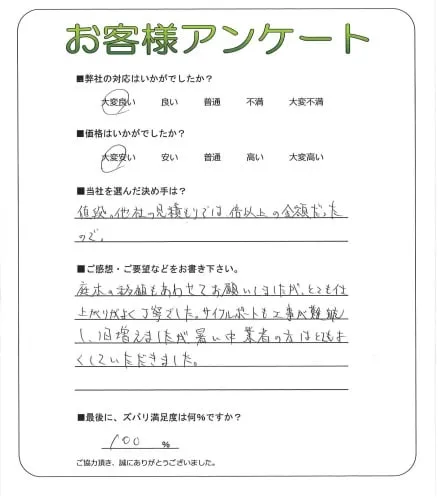 お客様アンケート
■弊社の対応はいかがでしたか？
大変良い 良い 普通 不満 大変不満
■価格はいかがでしたか？
大変安い 安い 普通 高い 大変高い
■当社を選んだ決め手は？
値段。他社の見積もりでは倍以上の金額だった
ので。
■ご感想・ご要望などをお書き下さい。
庭木の もあわせてお願いしましたが、とても仕
上がりがよく丁寧でした。サイクルポートも工事が難航
し、1日増えましたが暑い中業者の方はとてもよ
くしていただきました。
■最後に、ズバリ満足度は何％ですか？
100 %
ご協力頂き、誠にありがとうございました。